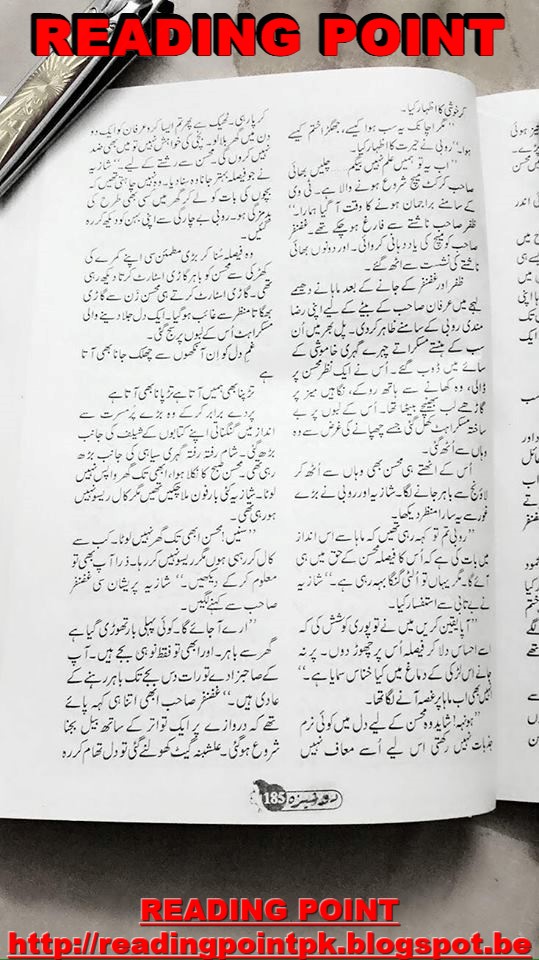 READING POINT
گرمجوشی کا اظہار کیا۔
’’مگر اچانک یہ سب ہوا کیسے، جھگڑا ختم کیسے
ہوا۔‘‘ روبی نے حیرت کا اظہار کیا۔
’’اب یہ تو ہمیں علم نہیں بیگم...... چلیں بھائی
صاحب کرکٹ میچ شروع ہونے والا ہے۔ ٹی وی
کے سامنے براجمان ہونے کا وقت آ گیا ہمارا۔‘‘
ظفر صاحب ناشتے سے فارغ ہو چکے تھے۔ غضنفر
صاحب کو میچ کی یاد دہانی کروائی۔ اور دونوں بھائی
ناشتے کی نشست سے اٹھ گئے۔
ظفر اور غضنفر کے جانے کے بعد ماہا نے دھیمے
لہجے میں عرفان صاحب کے بیٹے کے لیے اپنی رضا
مندی روبی کے سامنے ظاہر کر دی۔ پل بھر میں اُن
سب کے ہنستے مسکراتے چہرے گہری خاموشی کے
سائے میں ڈوب گئے۔ اُس نے ایک نظر محسن پر
ڈالی، وہ کھانے سے ہاتھ روکے، نگاہیں میز پر
گاڑھے لب بھینچے بیٹھا تھا۔ اُس کے لبوں پر بے
ساختہ مسکراہٹ کھل گئی جسے چھپانے کی غرض سے وہ
وہاں سے اُٹھ گئی۔
اُس کے اٹھتے ہی محسن بھی وہاں سے اُٹھ کر
لاؤنج سے باہر جانے لگا۔ شازیہ اور روبی نے بڑے
غور سے یہ سارا منظر دیکھا۔
’’روبی تم تو کہہ رہی تھیں کہ ماہا سے اس انداز
میں بات کی ہے کہ اُس کا فیصلہ محسن کے حق میں ہی
آئے گا۔ مگر یہاں تو الٹی گنگا بہہ رہی ہے۔‘‘ شازیہ
نے بے تابی سے استفسار کیا۔
’’آپا یقین کریں میں نے تو پوری کوشش کی کہ
اسے احساس دلا کر فیصلہ اُس پر چھوڑ دوں۔ پر نہ
جانے اس لڑکی کے دماغ میں کیا خناس سمایا ہے۔‘‘
انہیں بھی اب ماہا پر غصہ آنے لگا تھا۔
’’ہونہہ! شاید وہ محسن کے لیے دل میں کوئی نرم
جذبات نہیں رکھتی اس لیے اُسے معاف نہیں
کر پا رہی۔ ٹھیک ہے پھر تم ایسا کرو عرفان کو ایک دو
دن میں گھر بلا لو۔ بچی کی خواہش نہیں تو میں بھی ضد
نہیں کروں گی۔ محسن سے رشتے کے لیے۔‘‘ شازیہ
نے جو فیصلہ بہتر جانا وہ سنا دیا۔ وہ نہیں چاہتی تھیں کہ
بچوں کی بات کو لے کر گھر میں کسی بھی طرح کی
بدمزگی ہو۔ روبی بے چارگی سے اپنی بہن کو دیکھ کر رہ
گئیں۔
وہ فیصلہ سُنا کر بڑی مطمئن سی اپنے کمرے کی
کھڑکی سے محسن کو باہر گاڑی اسٹارٹ کرتا دیکھ رہی
تھی۔ گاڑی اسٹارٹ کرتے ہی محسن زن سے گاڑی
بھگاتا منظر سے غائب ہو گیا۔ ایک دل جلا دینے والی
مسکراہٹ اُس کے لبوں پر سج گئی۔
غمِ دل کو اِن آنکھوں سے چھلک جانا بھی آتا
ہے
تڑپنا بھی ہمیں آتا ہے تڑپانا بھی آتا ہے
پردے برابر کر کے وہ بڑے پُر مسرت سے
انداز میں گنگناتی اپنے کتابوں کے شیلف کی جانب
بڑھ گئی۔ شام رفتہ رفتہ گہری سیاہی کی جانب بڑھ
رہی تھی۔ محسن صبح کا نکلا ہوا، ابھی تک گھر واپس نہیں
لوٹا۔ شازیہ کئی بار فون ملا چکیں تھیں مگر کال ریسو نہیں
ہو رہی تھی۔
’’سنیں! محسن ابھی تک گھر نہیں لوٹا۔ کب سے
کال کر رہی ہوں مگر ریسو نہیں کر رہا۔ ذرا آپ بھی تو
معلوم کر کے دیکھیں۔‘‘ شازیہ پریشان سی غضنفر
صاحب سے کہنے لگیں۔
’’ارے آ جائے گا۔ کوئی پہلی بار تھوڑی گیا ہے
گھر سے باہر۔ اور ابھی تو فقط نو ہی بجے ہیں۔ آپ
کے صاحبزادے تو رات دس بجے تک باہر رہنے کے
عادی ہیں۔‘‘ غضنفر صاحب ابھی اتنا ہی کہہ پائے
تھے کہ دروازے پر ایک تواتر کے ساتھ بیل بجنا
شروع ہو گئی۔ علشبہ گیٹ کھولنے گئی تو دل تھام کر رہ
دوشیزہ 185
READING POINT
http://readingpointpk.blogspot.be